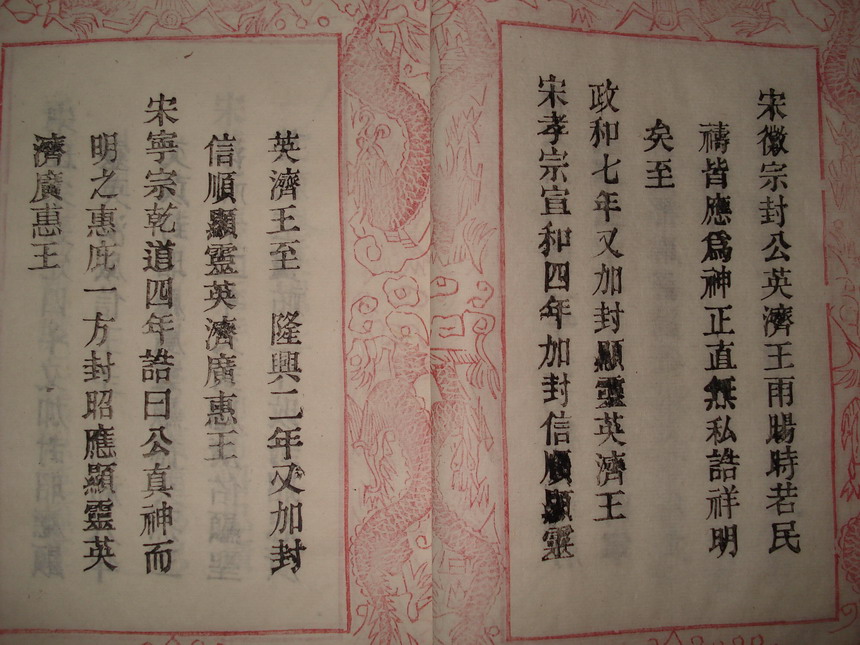 宋徽宗封公英濟王雨暘時若民
禱皆應爲神正直無私誥祥明
矣至
政和七年又加封顯靈英濟王
宋孝宗宣和四年加封信順顯靈
英濟王至 隆興二年又加封
信順顯靈英濟廣惠王
宋寧宗乾道四年誥曰公真神而
明之惠庇一方封昭應顯靈英
濟廣惠王